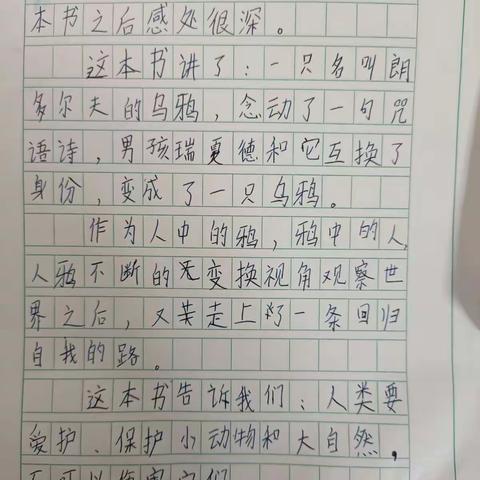 本书之后感处很深。
这本书讲了：一只名叫朗
多尔夫的乌鸦，念动了一句咒
语诗，男孩瑞夏德和它互换了
身份，变成了一只乌鸦。
作为人中的鸦，鸦中的人，
人鸦不断的变换视角观察世
界之后，又走上了一条回归
自我的路。
这本书告诉我们：人类要
爱护、保护小动物和大自然，
不可以伤害它们